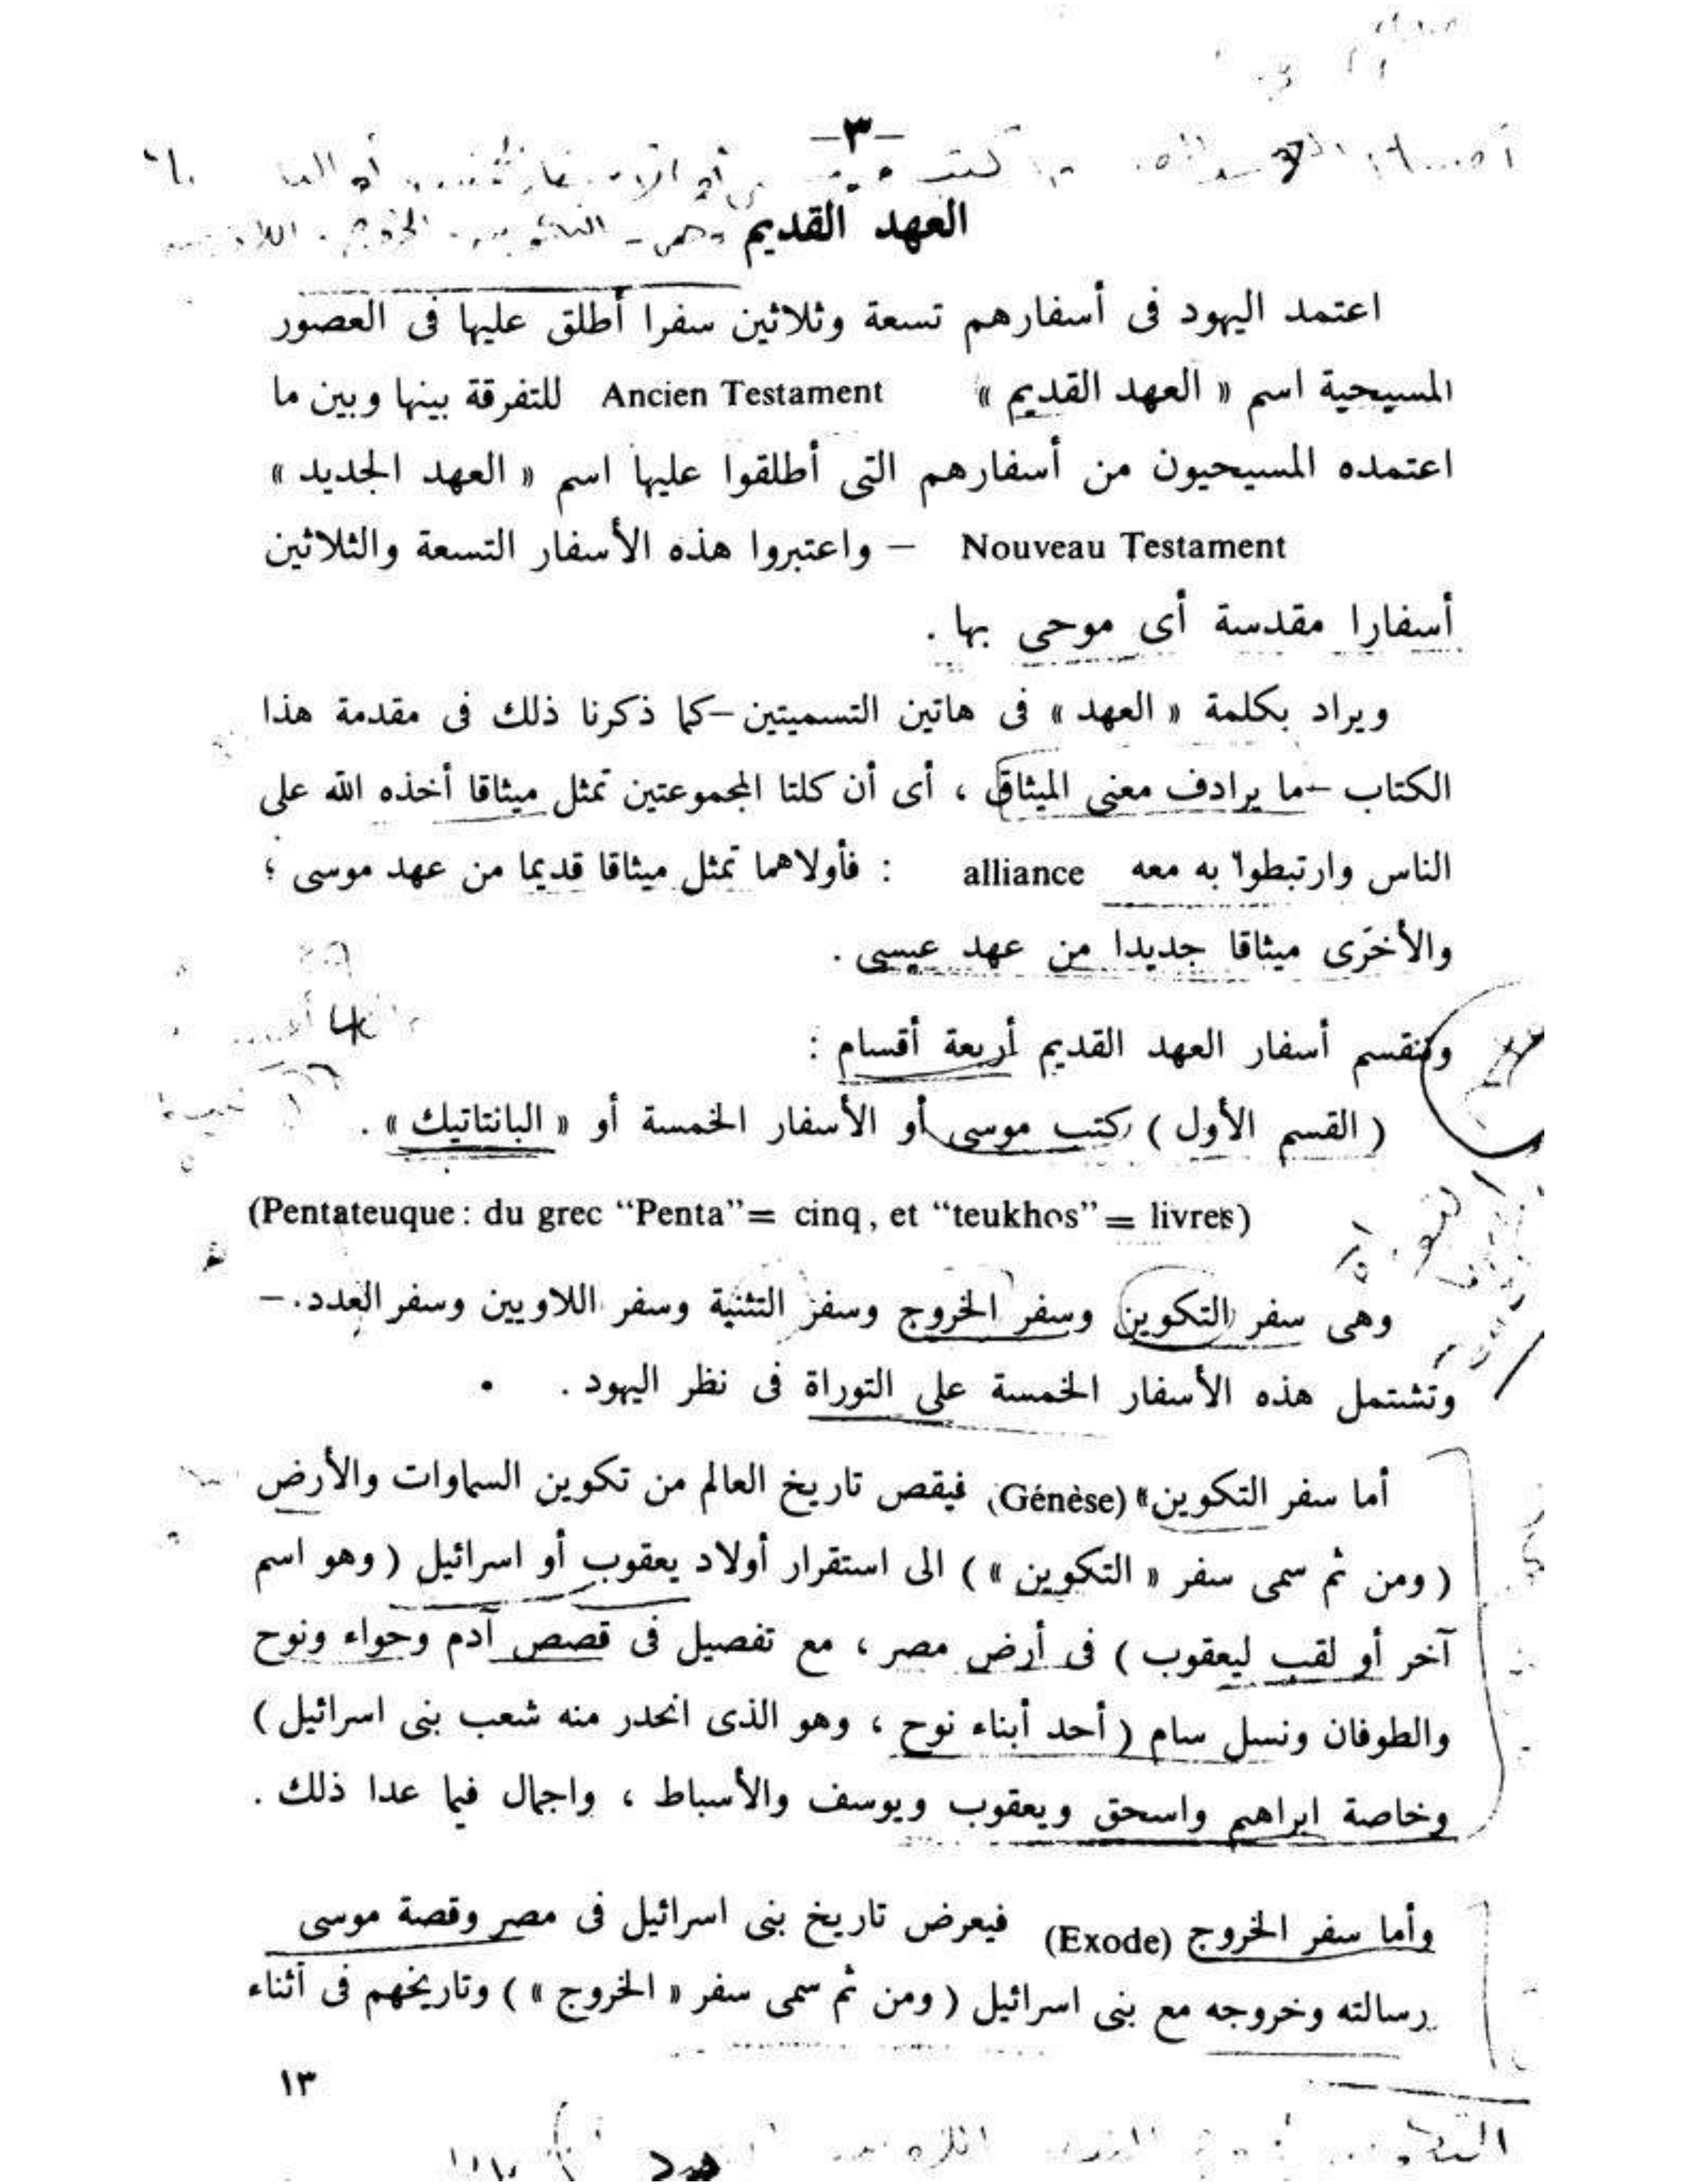 –٣–
العهد القديم
اعتمد اليهود فى أسفارهم تسعة وثلاثين سفرا أطلق عليها فى العصور
المسيحية اسم « العهد القديم » Ancien Testament للتفرقة بينها وبين ما
اعتمده المسيحيون من أسفارهم التى أطلقوا عليها اسم « العهد الجديد »
Nouveau Testament – واعتبروا هذه الأسفار التسعة والثلاثين
أسفارا مقدسة أى موحى بها .
ويراد بكلمة « العهد » فى هاتين التسميتين –كما ذكرنا ذلك فى مقدمة هذا
الكتاب –ما يرادف معنى الميثاق ، أى أن كلتا المجموعتين تمثل ميثاقا أخذه الله على
الناس وارتبطوا به معه alliance : فأولاهما تمثل ميثاقا قديما من عهد موسى ؛
والأخرى ميثاقا جديدا من عهد عيسى .
وتنقسم أسفار العهد القديم أربعة أقسام :
( القسم الأول ) كتب موسى أو الأسفار الخمسة أو « البانتاتيك » .
(Pentateuque : du grec “Penta”= cinq, et “teukhos”= livres)
وهى سفر التكوين وسفر الخروج وسفر التثنية وسفر اللاويين وسفر العدد. –
وتشتمل هذه الأسفار الخمسة على التوراة فى نظر اليهود .
أما سفر التكوين» (Génèse) فيقص تاريخ العالم من تكوين السماوات والأرض
( ومن ثم سمى سفر « التكوين » ) الى استقرار أولاد يعقوب أو اسرائيل ( وهو اسم
آخر أو لقب ليعقوب ) فى أرض مصر ، مع تفصيل فى قصص آدم وحواء ونوح
والطوفان ونسل سام ( أحد أبناء نوح ، وهو الذى انحدر منه شعب بنى اسرائيل )
وخاصة ابراهيم واسحق ويعقوب ويوسف والأسباط ، واجمال فيما عدا ذلك .
وأما سفر الخروج (Exode) فيعرض تاريخ بنى اسرائيل فى مصر وقصة موسى
رسالته وخروجه مع بنى اسرائيل ( ومن ثم سمى سفر « الخروج » ) وتاريخهم فى أثناء
١٣